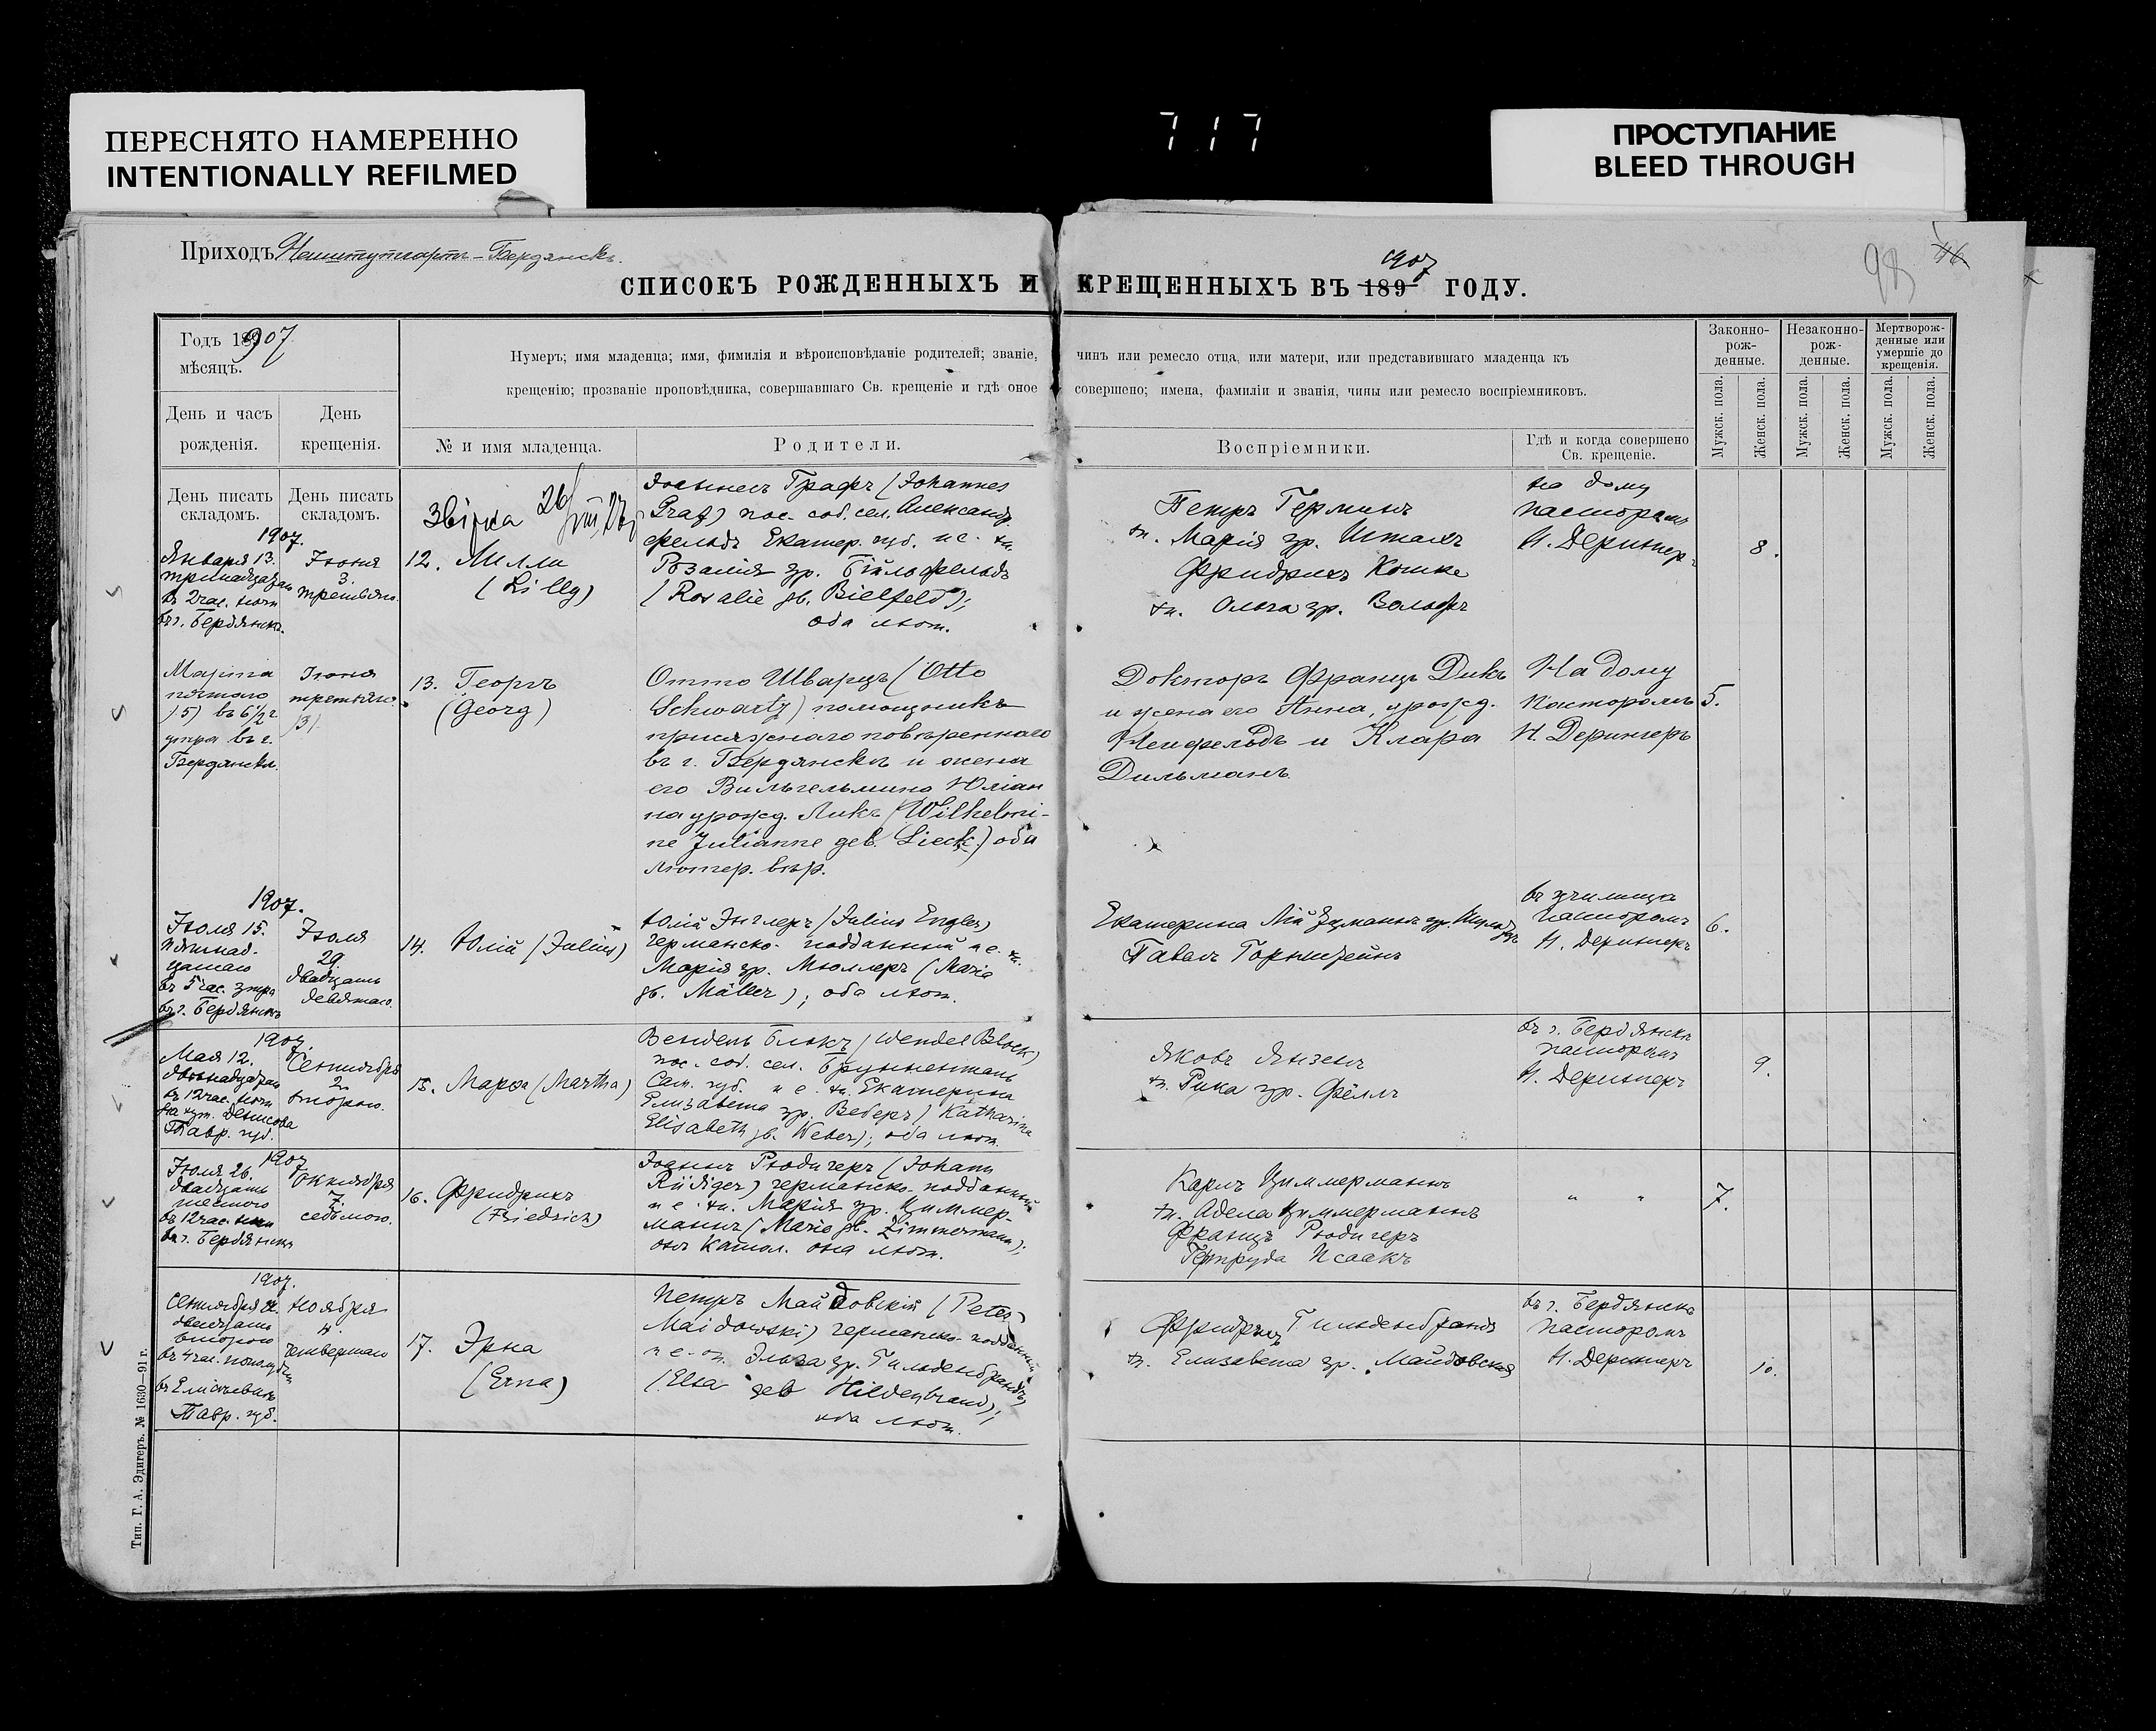 ПЕРЕСНЯТО НАМЕРЕННО
INTENTIONALLY REFILMED
717
ПРОСТУПАНИЕ
BLEED THROUGH
Приходъ Нейштутгартъ-Бердянскъ.
98
СПИСОКЪ РОЖДЕННЫХЪ И КРЕЩЕННЫХЪ ВЪ 189 1907 ГОДУ.
Годъ 1907
мѣсяцъ.
День и часъ
рожденія.
День
крещенія.
Нумеръ; имя младенца; имя, фимилія и вѣроисповѣданіе родителей; званіе, чинъ или ремесло отца, или матери, или представившаго младенца къ
крещенію; прозваніе проповѣдника, совершавшаго Св. крещеніе и гдѣ оное совершено; имена, фамиліи и званія, чины или ремесло воспріемниковъ.
№ и имя младенца.
Родители.
Воспріемники.
Гдѣ и когда совершено
Св. крещеніе.
Законно-
рож-
денные.
Незаконно-
рож-
денные.
Мертворож-
денные или
умершіе до
крещенія.
Мужск. пола.
Женск. пола.
Мужск. пола.
Женск. пола.
Мужск. пола.
Женск. пола.
День писать
складомъ.
День писать
складомъ.
1907.
Января 13.
въ 2 час. ночи
въ г. Бердянскъ.
Іюня
3.
третьяго.
12. Лилли
(Lilly)
Іоганнесъ Графъ (Johannes
Graf) пос. соб. сел. Александр
фельдъ Екатер. губ. и е. ж.
Розалія ур. Бильфельдъ
(Rosalie gb. Bielfeld);
оба лют.
Петръ Германъ
ж. Марія ур. Шталь
Фридрихъ Кошке
ж. Ольга ур. Вольфъ
на дому
пасторомъ
Н. Дерингер.
8.
Марта
пятаго
(5) въ 6 1/2 г
утра въ г.
Бердянскѣ.
Іюня
третьяго
(3).
13. Георгъ
(Georg)
Отто Шварцъ (Otto
Schwartz) помощникъ
присяжнаго повѣреннаго
въ г. Бердянскѣ и жена
его Вильгельмина Юліан
на урожд. Ликъ (Wilhelmi-
ne Julianne geb. Lieck.) оба
лютер. вѣр.
Докторъ Францъ Дикъ
и жена его Анна, урожд.
Нейфельдъ и Клара
Дильманъ.
На дому
пасторомъ
Н. Дерингеръ
5.
1907.
Іюля 15.
пятнад-
цатаго
въ 5 час. утра
въ г. Бердянскъ
Іюля
29.
двадцать
девятаго.
14. Юлій (Julius)
Юлій Энглеръ (Julius Engler)
германско-подданный и е. ж.
Марія ур. Мюллеръ (Maria
gb. Müller); оба лют.
Павелъ Горнштейнъ
въ училищѣ
пасторомъ
Н. Дерингеръ
6.
1907.
Мая 12.
двѣнадцатаго
въ 12 час. ночи
на хут. Денисова
Тавр. губ.
Сентября
2.
второго.
15. Марѳа (Martha)
Вендель Блокъ (Wendel Block)
пос. соб. сел. Брунненталь
Сам. губ. и е. ж. Екатерина
Елизавета ур. Веберъ) Katharina
Elisabeth gb. Weber); оба лют.
Яковъ Янзенъ
ж. Рика ур. Фёлль
въ г. Бердянскѣ
пасторомъ
Н. Дерингеръ
9.
1907
Іюля 26.
двадцать
шестого
въ 12 час. ночи
въ г. Бердянскъ
Октября
7.
седьмого.
16. Фридрихъ
(Friedrich)
Іоганнъ Рюдигеръ (Johann
Rüdiger) германско-подданный
и е. ж. Марія ур. Циммер-
манъ (Marie gb. Zimmermann);
онъ катол. она лют.
Карлъ Циммерманнъ
ж. Адела Циммерманнъ
Францъ Рюдигеръ
Гертруда Исаакъ
" "
7.
1907.
Сентября
двадцать
второго
въ 4 час. пополудни
Тавр. губ.
Ноября
4.
четвертаго
17. Эрна
(Erna)
Петръ Майдовскій (Peter
Maidowski) германско-подданный
и е. ж. Эльза ур. Гильденбрандъ
(Elsa geb Hildenbrand);
оба лют.
Фридрихъ Гильденбрандъ
ж. Елизавета ур. Майдовская
въ г. Бердянскѣ
пасторомъ
Н. Дерингеръ
10.
Тип. Г. А. Эдигеръ. № 1630—91 г.